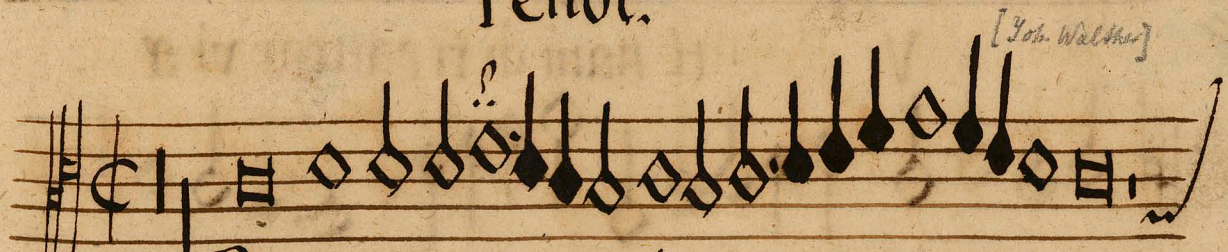 Tenor.
[Joh. Walther]